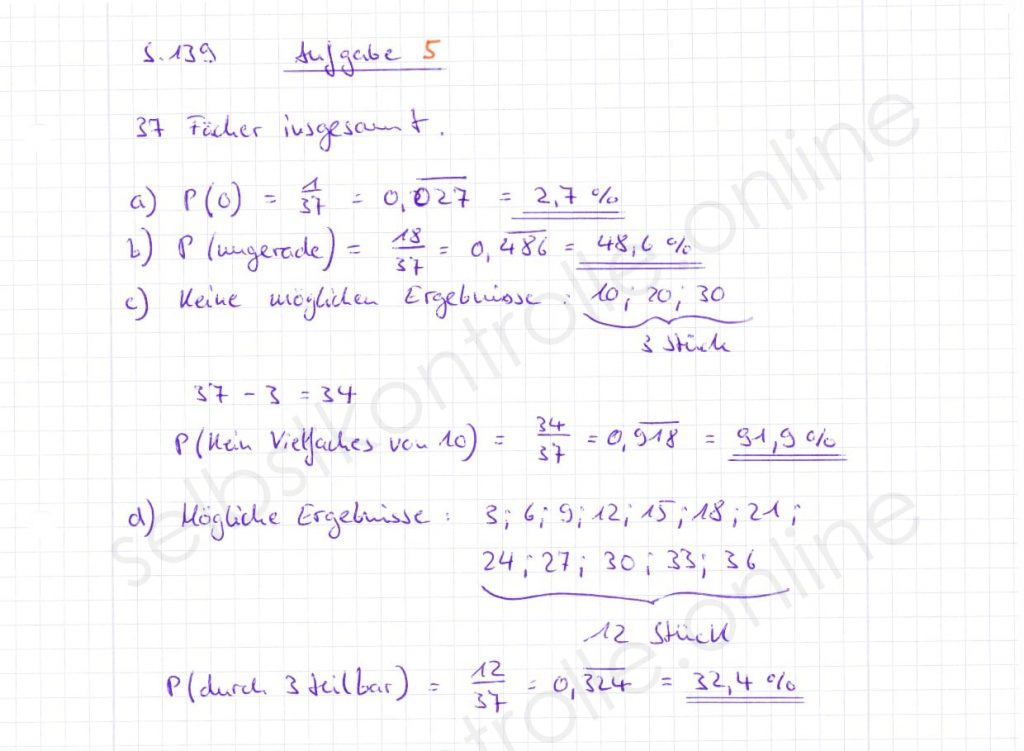 S. 139 Aufgabe 5
37 Fächer insgesamt.
a) P(0) = 1/37 = 0,0̅2̅7̅ = 2,7 %
b) P(ungerade) = 18/37 = 0,4̅8̅6̅ = 48,6 %
c) Keine möglichen Ergebnisse: 10; 20; 30
3 Stück
37 - 3 = 34
P(Kein Vielfaches von 10) = 34/37 = 0,9̅1̅8̅ = 91,9 %
d) Mögliche Ergebnisse: 3; 6; 9; 12; 15; 18; 21;
24; 27; 30; 33; 36
12 Stück
P(durch 3 teilbar) = 12/37 = 0,3̅2̅4̅ = 32,4 %
selbstkontrolle.online
selbstkontrolle.online